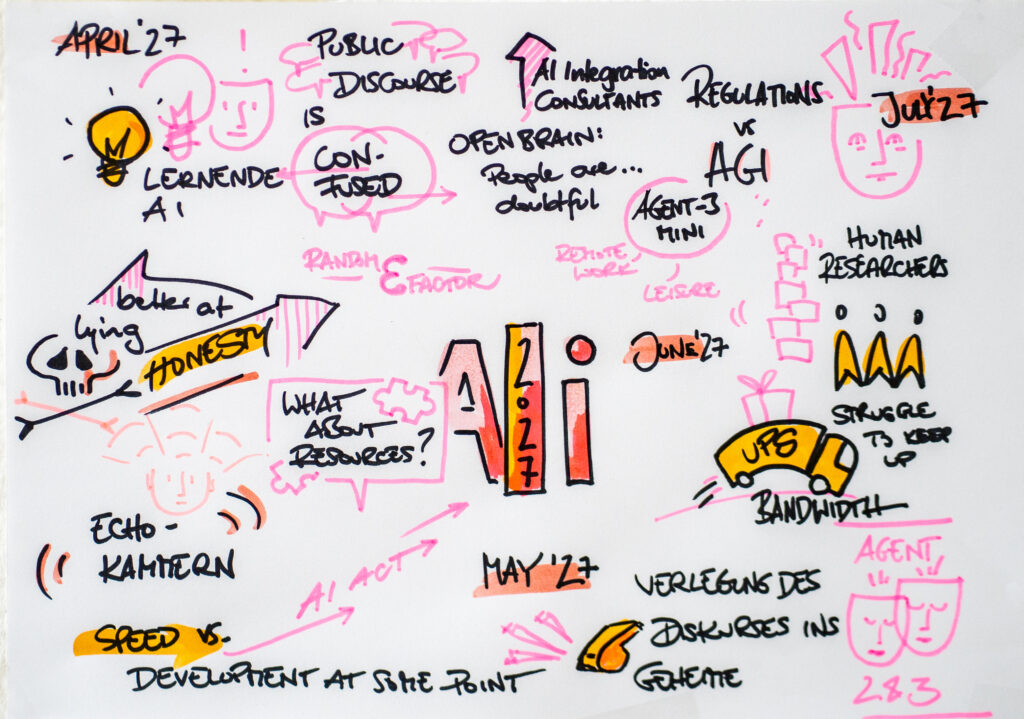 APRIL '27
LERNENDE
AI
PUBLIC
DISCOURSE
IS
CON-
FUSED
RANDOM
FACTOR
AI Integration
CONSULTANTS
OPENBRAIN:
People are...
doubtful
REGULATIONS
vs
AGI
AGENT-3
MINI
REMOTE
WORK
LEISRE
JULY '27
HUMAN
RESEARCHERS
STRUGGLE
TO KEEP
UP
better at
lying
HONESTY
WHAT
ABOUT
RESOURCES?
AI
2027
JUNE '27
UPS
BANDWIDTH
ECHO-
KAMMERN
AI ACT
SPEED vs.
DEVELOPMENT AT SOME POINT
MAY '27
VERLEGUNG DES
DISKURSES INS
GEHEIME
AGENT
2 & 3